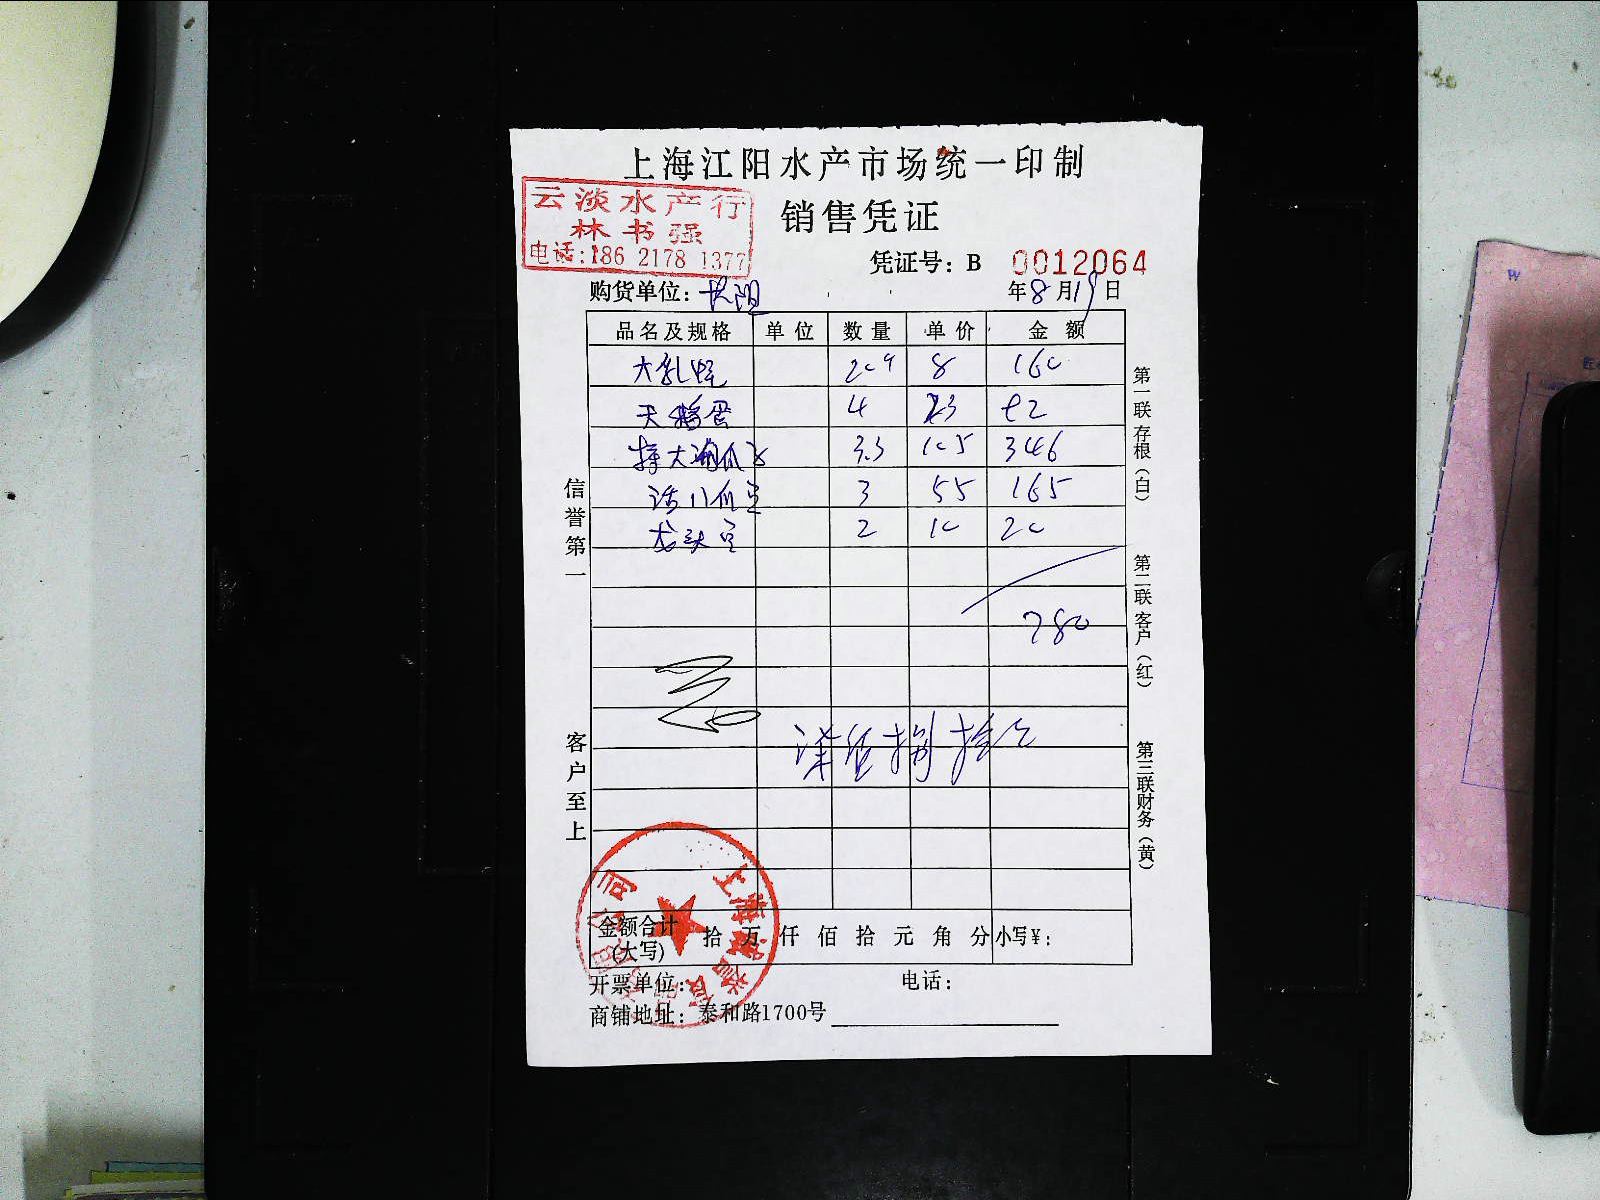 上海江阳水产市场统一印制
云淡水产行
林书强
电话:186 2178 1377
销售凭证
凭证号: B 0012064
购货单位:
年8月19日
品名及规格 单位 数量 单价 金额
8 160
天鹅蛋 4 23
特大 3.3 105 346
活八爪 3 55 165
龙头 2 10 20
780
柒佰捌拾元
信誉第一
客户至上
第一联存根(白)
第二联客户(红)
第三联财务(黄)
金额合计(大写) 拾 万 仟 佰 拾 元 角 分 小写¥:
开票单位: 电话:
商铺地址: 泰和路1700号